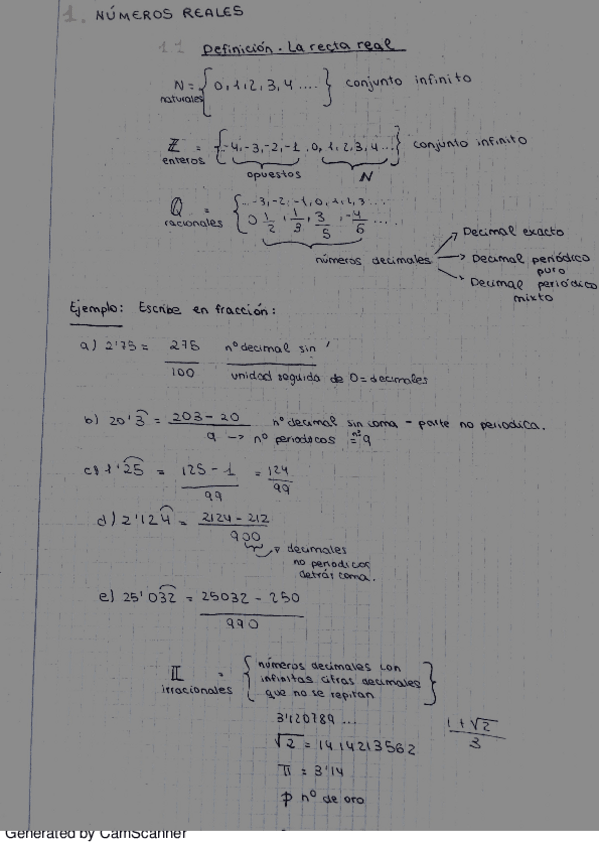 1. NÚMEROS REALES
1.1 Definición. La recta real
N = { 0, 1, 2, 3, 4 .... } conjunto infinito
naturales
ℤ = {-4, -3, -2, -1, 0, 1, 2, 3, 4...} conjunto infinito
enteros
opuestos N
ℚ = { ... -3, -2, -1, 0, 1, 2, 3 ...
racionales 0 1/2, 1/3, 3/5, -4/6 ....
números decimales
Decimal exacto
Decimal periódico puro
Decimal periódico mixto
Ejemplo: Escribe en fracción:
a) 2'75 = 275/100 nº decimal sin '
unidad seguida de 0 = decimales
b) 20'3 = 203 - 20 / 9 nº decimal sin coma - parte no periodica.
→ nº periodicos nº = 9
c) 1'25 = 125 - 1 / 99 = 124/99
d) 2'124 = 2124 - 212 / 900
decimales
no periodicos
detrás coma.
e) 25'032 = 25032 - 250 / 990
𝕀 = { números decimales con
irracionales infinitas cifras decimales
que no se repitan }
3'120789 ...
1+√2 / 3
√2 = 1414213562
π = 3'14
φ nº de oro
Generated by CamScanner